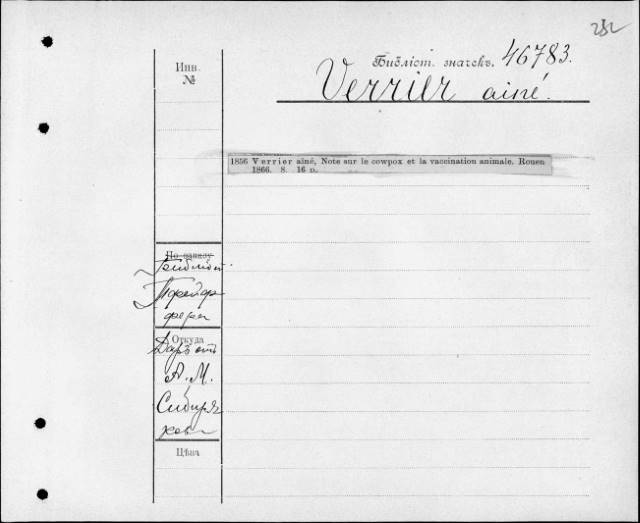 282
Инв.
№
Библіот. значекъ. 46783.
Verrier ainé.
1856 Verrier aîné, Note sur le cowpox et la vaccination animale. Rouen
1866. 8. 16 p.
По заказу
Библіот.
Пфейф
фера
Откуда
Даръ отъ
А. М.
Сибиря
кова
Цѣна